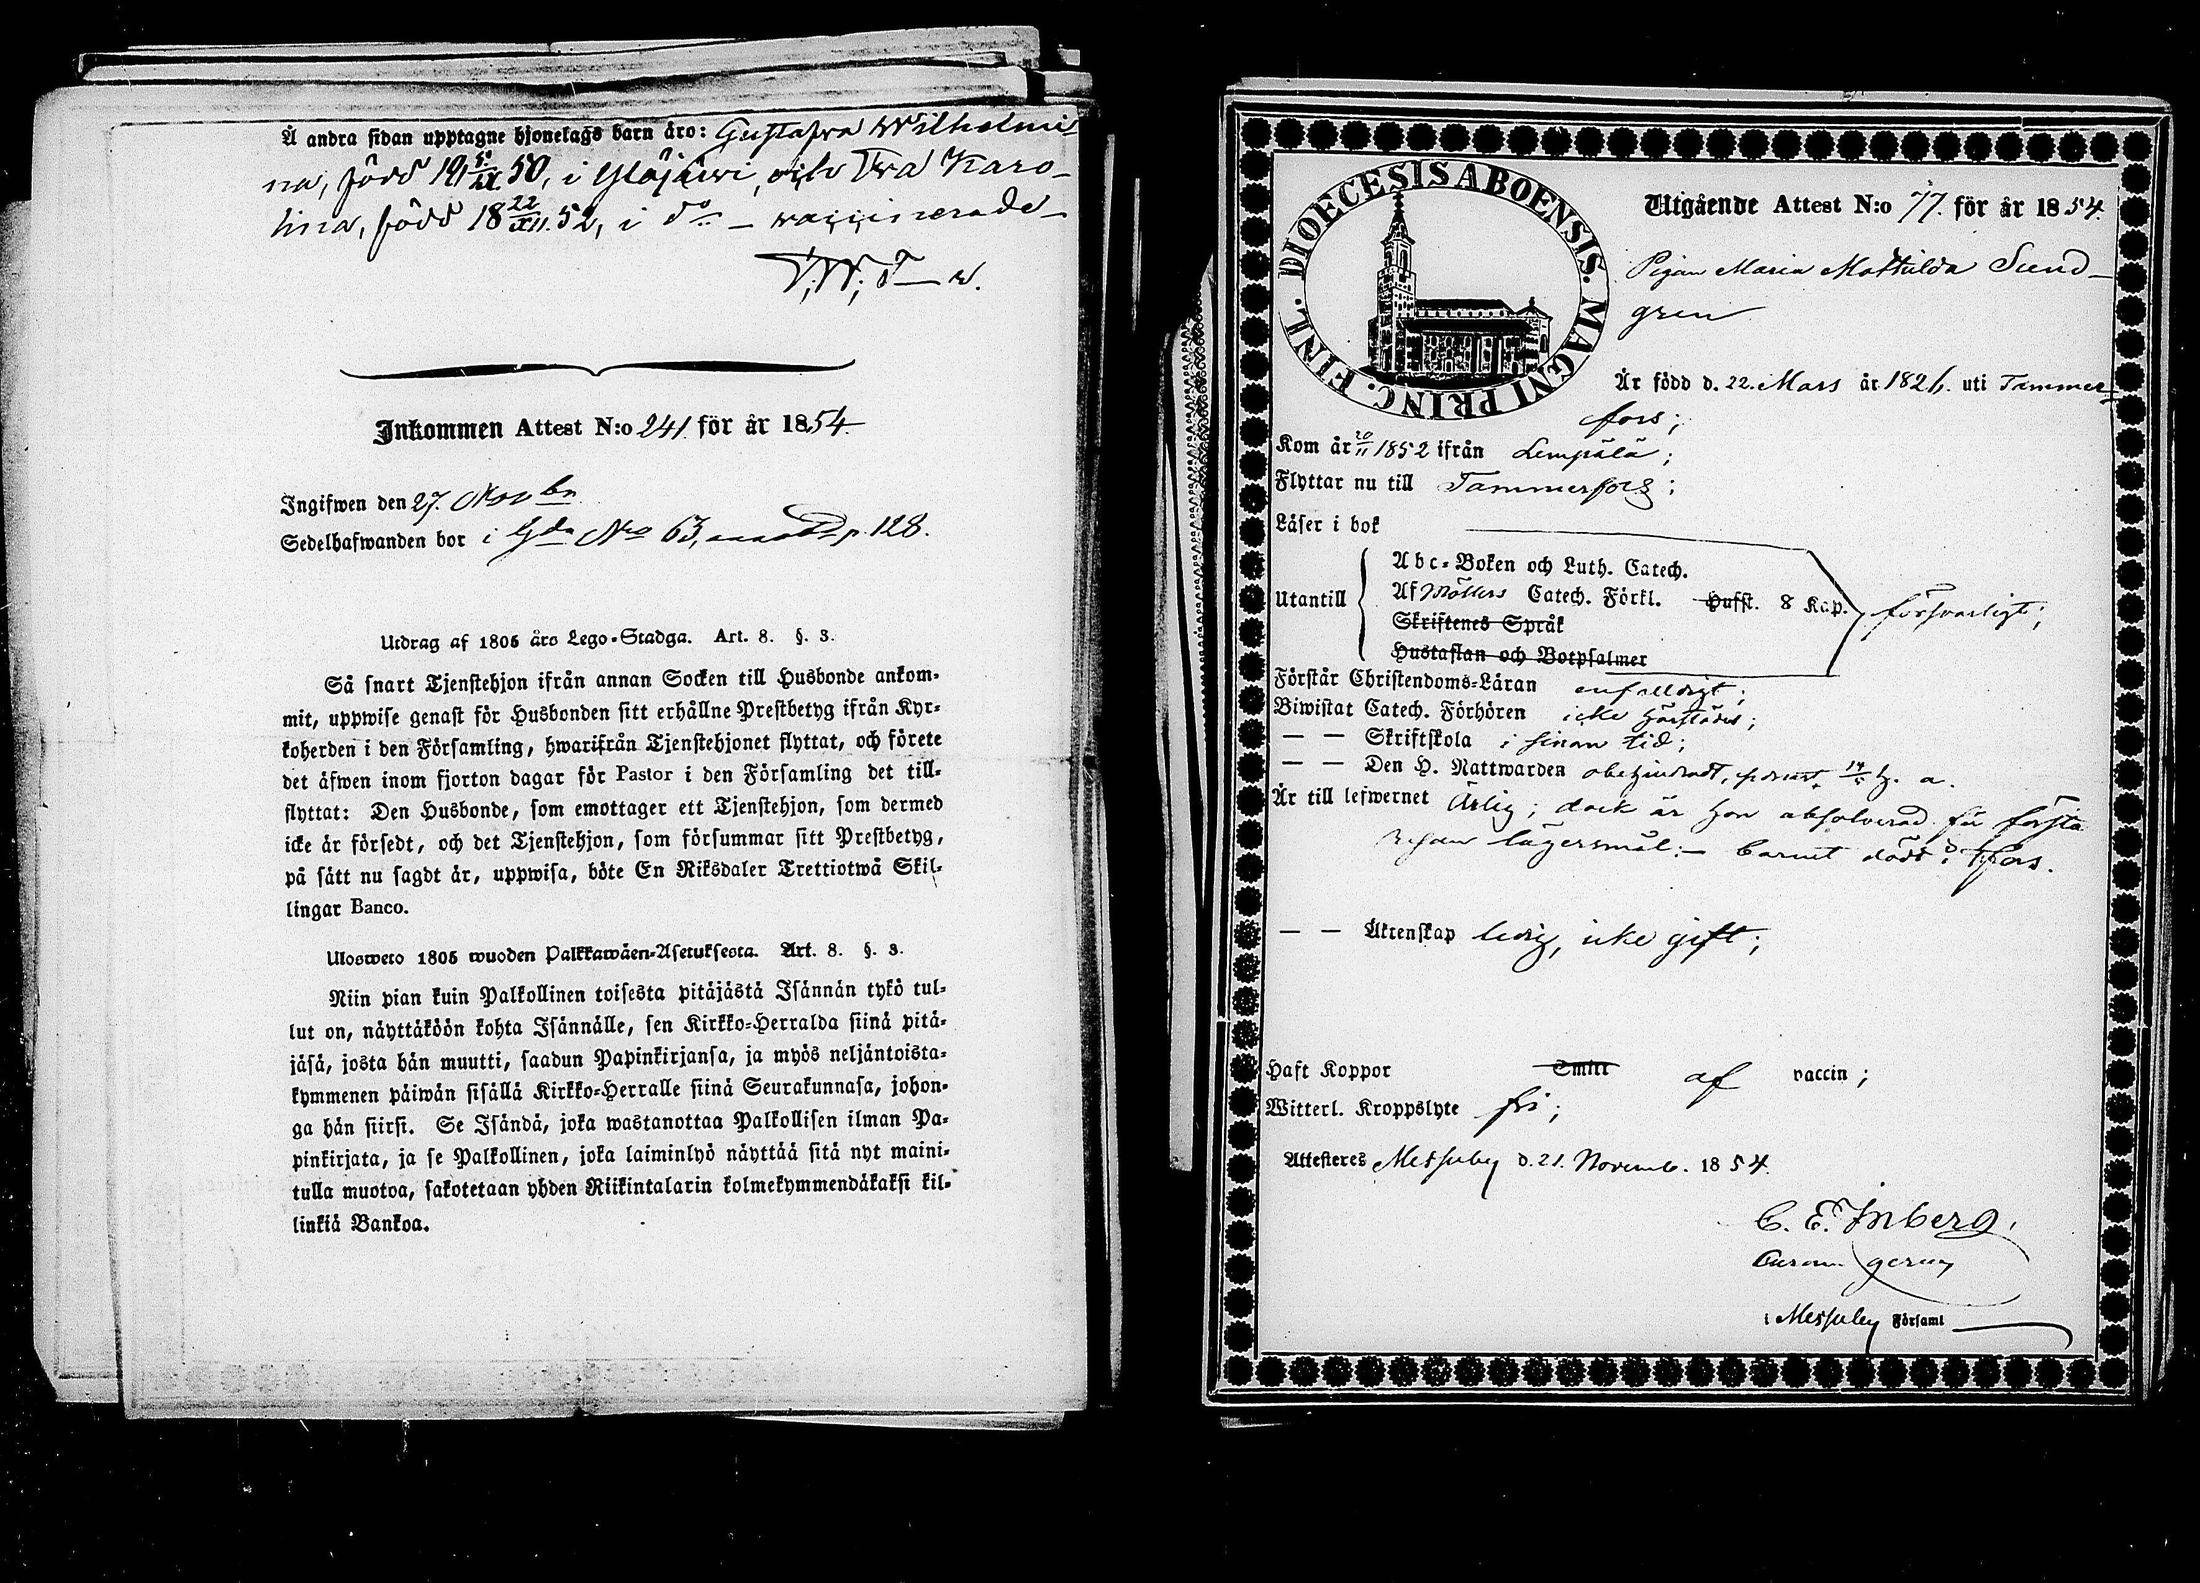 Å andra sidan upptagne hjonelags barn äro: Gustafva Wilhelmi
na, född 18 50, i Ylöjärvi, och Eva Karo-
lina, född 18 22/XII. 52, i d:o – vaccinerade –
Inkommen Attest N:o 241 för år 1854
Ingifwen den 27. Novbr
Sedelhafwanden bor i Gdn No 63, p. 128.
Utdrag af 1805 års Lego-Stadga. Art. 8. §. 3.
Så snart Tjenstehjon ifrån annan Socken till Husbonde ankom-
mit, uppwise genast för Husbonden sitt erhållne Prestbetyg ifrån Kyr-
koherden i den Församling, hwarifrån Tjenstehjonet flyttat, och förete
det äfwen inom fjorton dagar för Pastor i den Församling det till-
flyttat: Den Husbonde, som emottager ett Tjenstehjon, som dermed
icke är försedt, och det Tjenstehjon, som försummar sitt Prestbetyg,
på sätt nu sagdt är, uppwisa, böte En Riksdaler Trettiotwå Skil-
lingar Banco.
Ulosweto 1805 wuoden Palkkawäen-Asetuksesta. Art. 8. §. 3.
Niin pian kuin Palkollinen toisesta pitäjästä Isännän tykö tul-
lut on, näyttäköön kohta Isännälle, sen Kirkko-Herralda siinä pitä-
jäsä, josta hän muutti, saadun Papinkirjansa, ja myös neljäntoista-
kymmenen päiwän sisällä Kirkko-Herralle siinä Seurakunnasa, johon-
ga hän siirsi. Se Isändä, joka wastanottaa Palkollisen ilman Pa-
pinkirjata, ja se Palkollinen, joka laiminlyö näyttää sitä nyt maini-
tulla muotoa, sakotetaan yhden Riikintalarin kolmekymmendäkaksi kil-
linkiä Bankoa.
DIOECESIS ABOENSIS. MAGNI PRINC. FINL.
Utgående Attest N:o 77. för år 1854.
Pigan Maria Mathilda Sund-
gren
Är född d. 22. Mars år 1826. uti Tammer-
fors;
Kom år 20/11 1852 ifrån Lempälä;
Flyttar nu till Tammerfors;
Läser i bok
Abc-Boken och Luth. Catech.
Utantill Af Möllers Catech. Förkl. Hufst. 8 Kap. försvarligt;
Skriftenes Språk
Hustaflan och Botpsalmer
Förstår Christendoms-Läran enfaldigt;
Biwistat Catech. Förhören icke härstädes;
— — Skriftskola i sinom tid;
— — Den H. Nattwarden obehindradt, h. a.
Är till lefwernet Ärlig; dock är hon absolverad för första
resan lägersmål: – barnet dödt i Tfors.
— — Äktenskap ledig, icke gift;
Haft Koppor Smitt af vaccin;
Witterl. Kroppslyte fri;
Attesteres Messuby d. 21. Novemb. 1854.
C. E. Inberg.
i Messuby Församl